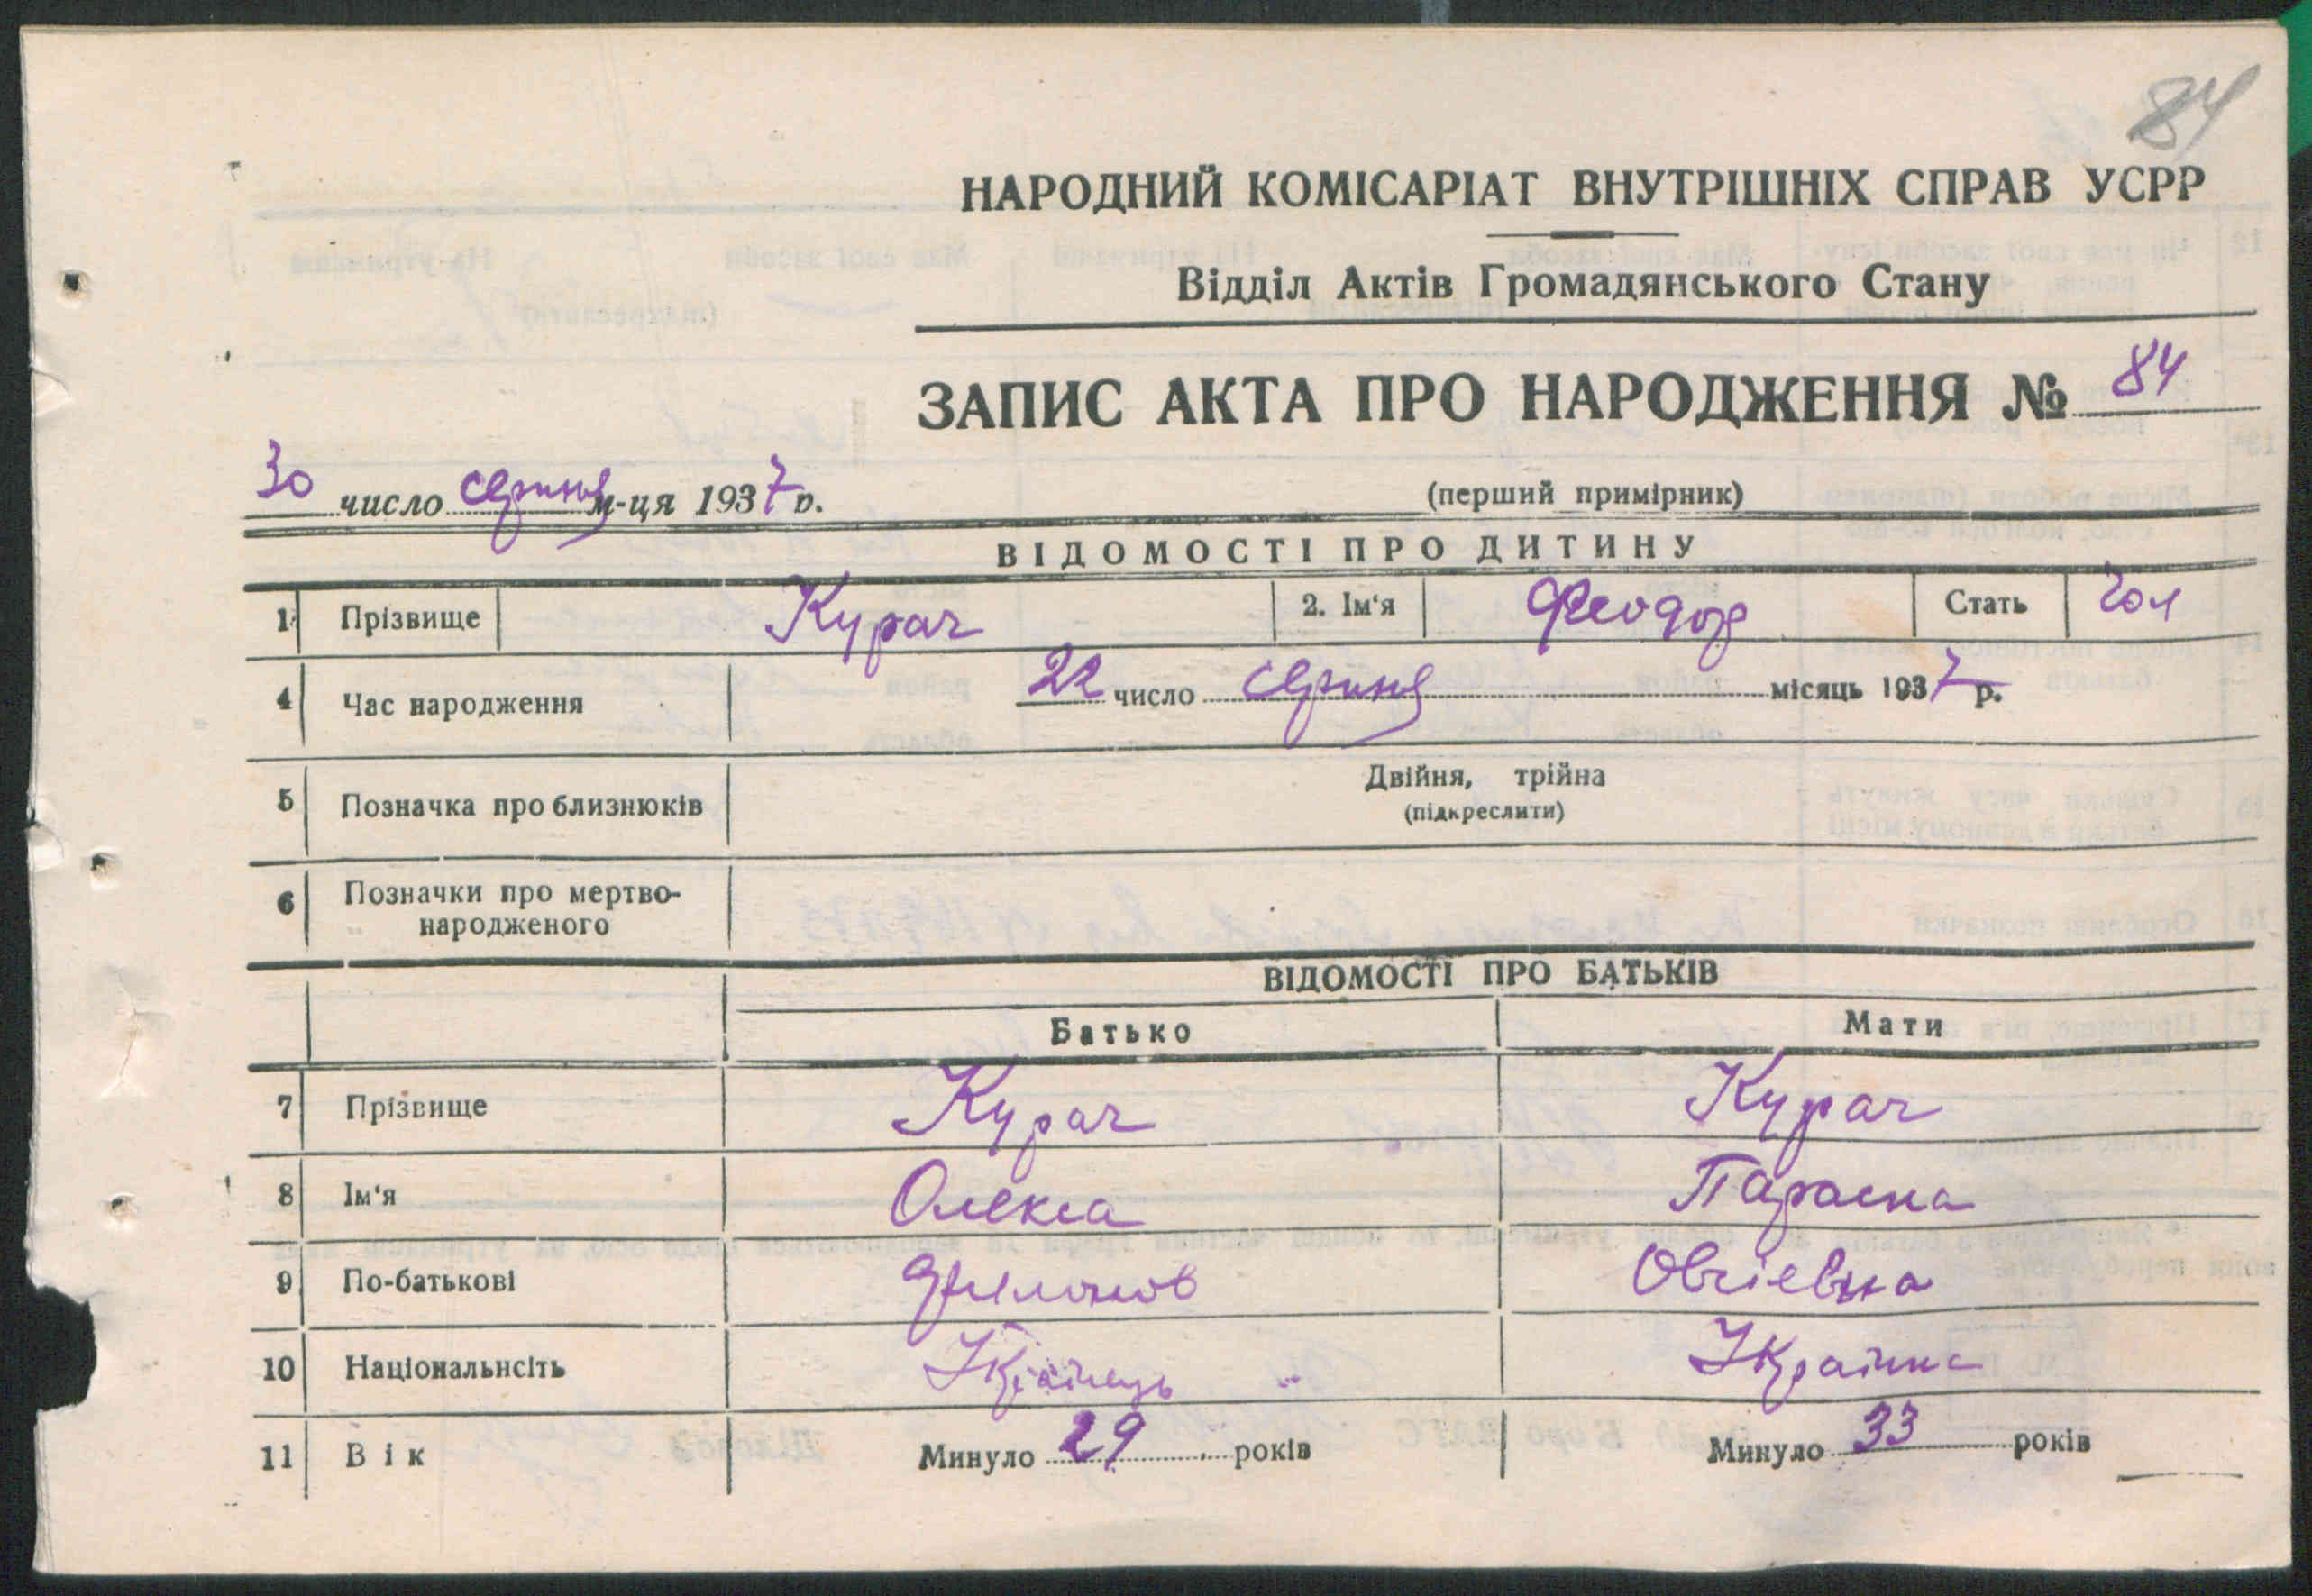 84
НАРОДНИЙ КОМІСАРІАТ ВНУТРІШНІХ СПРАВ УСРР
Відділ Актів Громадянського Стану
ЗАПИС АКТА ПРО НАРОДЖЕННЯ № 84
30 число серпня м-ця 1937 р.
(перший примірник)
ВІДОМОСТІ ПРО ДИТИНУ
1 Прізвище Курач 2. Ім‘я Феодор Стать чол
4 Час народження 22 число серпня місяць 1937 р.
5 Позначка про близнюків Двійня, трійна
(підкреслити)
6 Позначки про мертво-
народженого
ВІДОМОСТІ ПРО БАТЬКІВ
Батько Мати
7 Прізвище Курач Курач
8 Ім‘я Олекса Параска
9 По-батькові Филимонов Овсіевна
10 Національнсіть Українець Українка
11 Вік Минуло 29 років Минуло 33 років